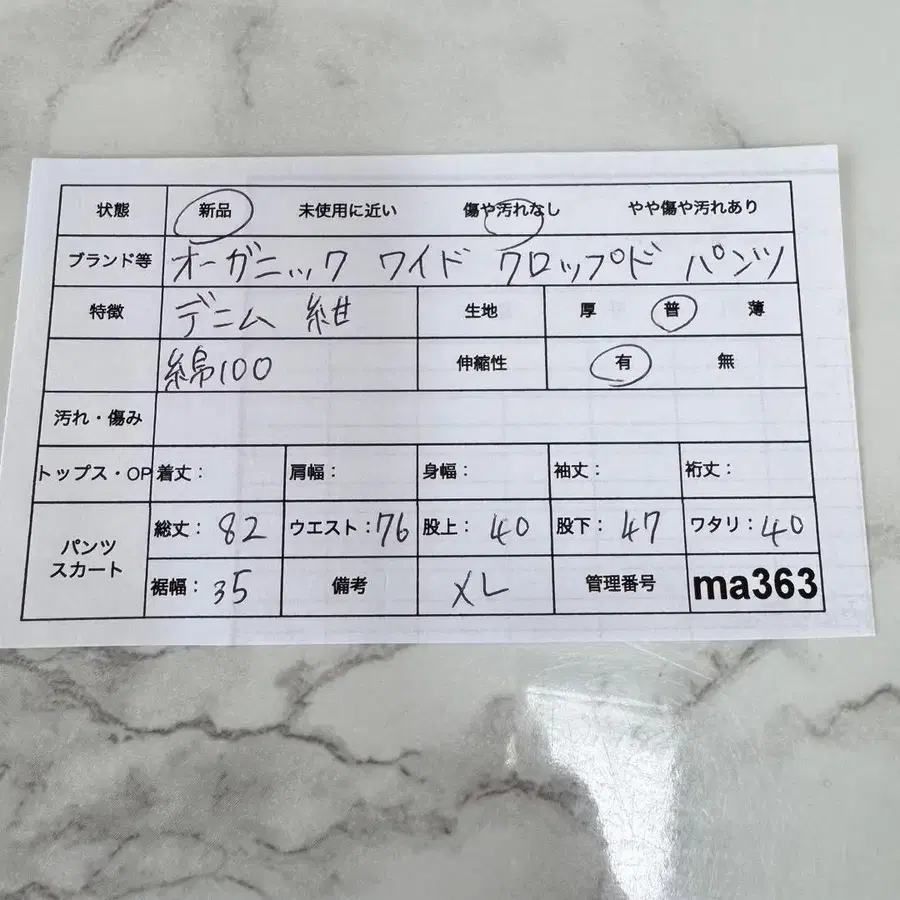 状態 新品 未使用に近い 傷や汚れなし やや傷や汚れあり
ブランド等 オーガニック ワイド クロップド パンツ
特徴 デニム 紺 生地 厚 普 薄
綿100 伸縮性 有 無
汚れ・傷み
トップス・OP 着丈: 肩幅: 身幅: 袖丈: 裄丈:
パンツ スカート 総丈: 82 ウエスト:76 股上: 40 股下: 47 ワタリ:40
裾幅: 35 備考 XL 管理番号 ma363